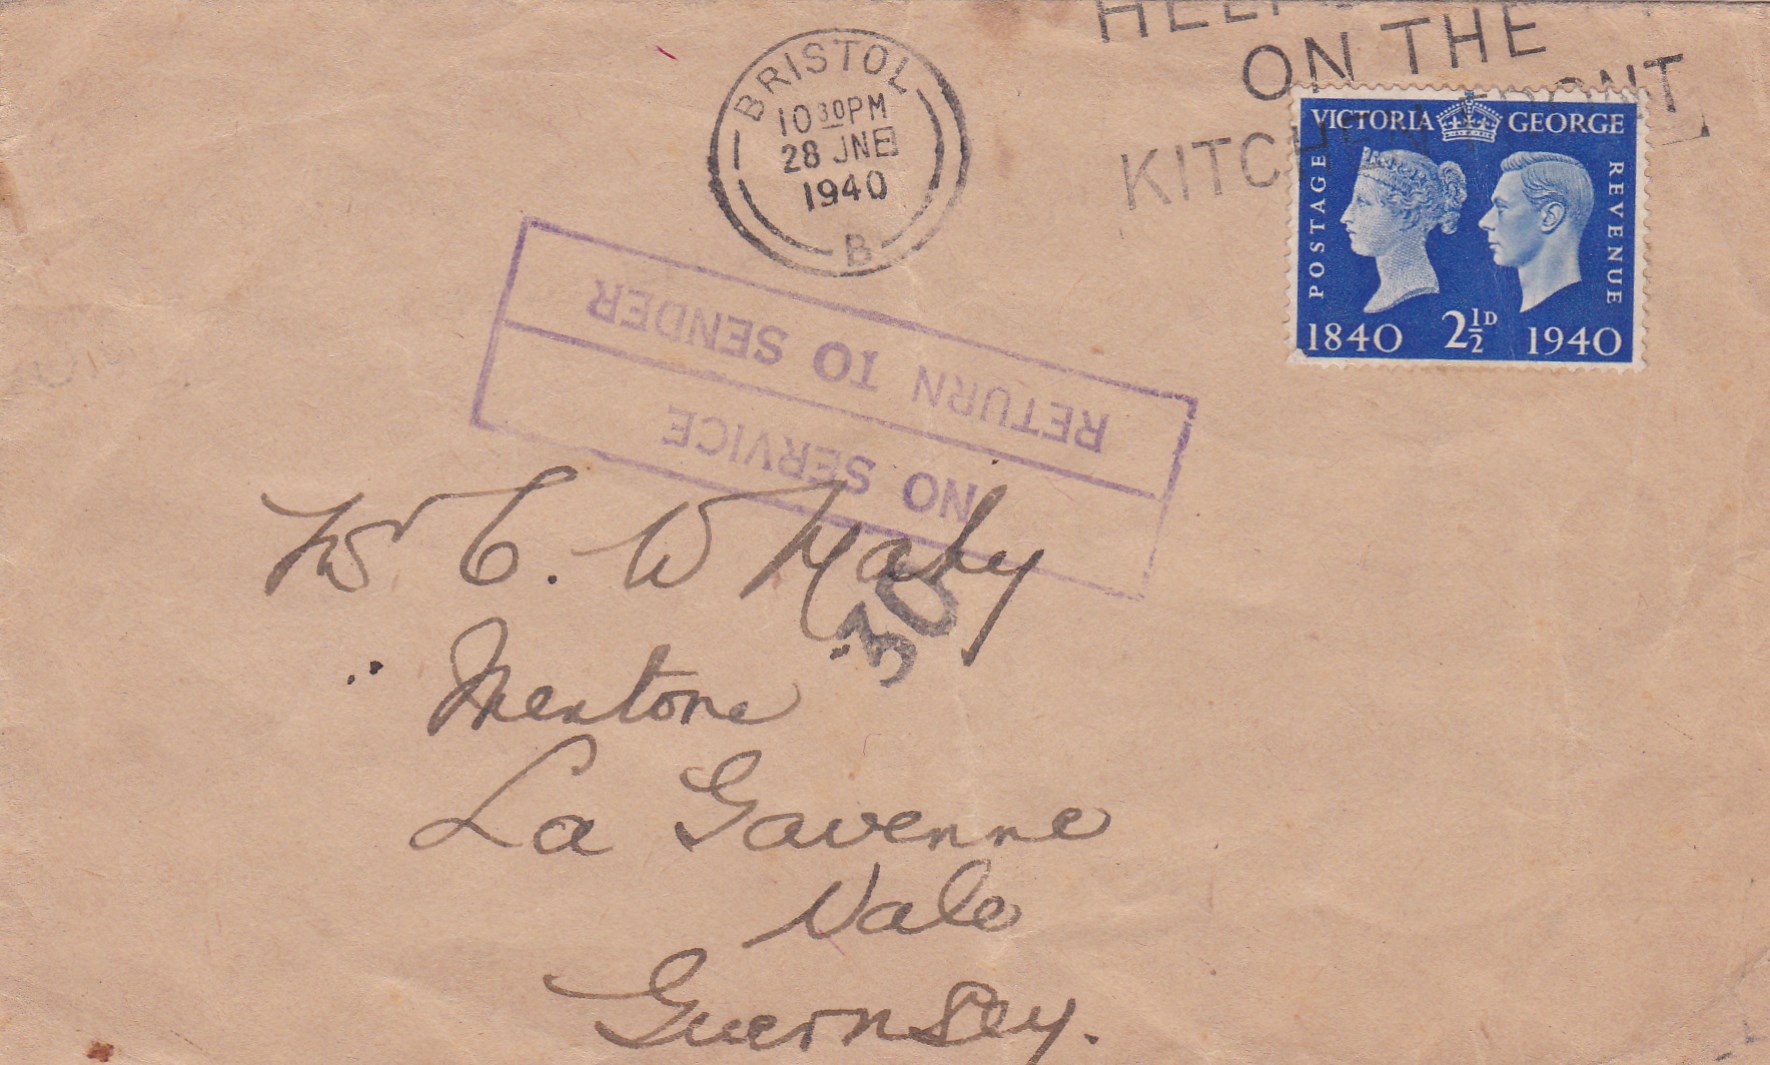 BRISTOL
10 30 PM
28 JNE
1940
B
ON THE
KITCHEN FRONT
VICTORIA GEORGE
POSTAGE
REVENUE
1840 2½D 1940
NO SERVICE
RETURN TO SENDER
30
C. W
Mentone
La Gavenne
Vale
Guernsey.